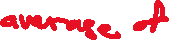 average of